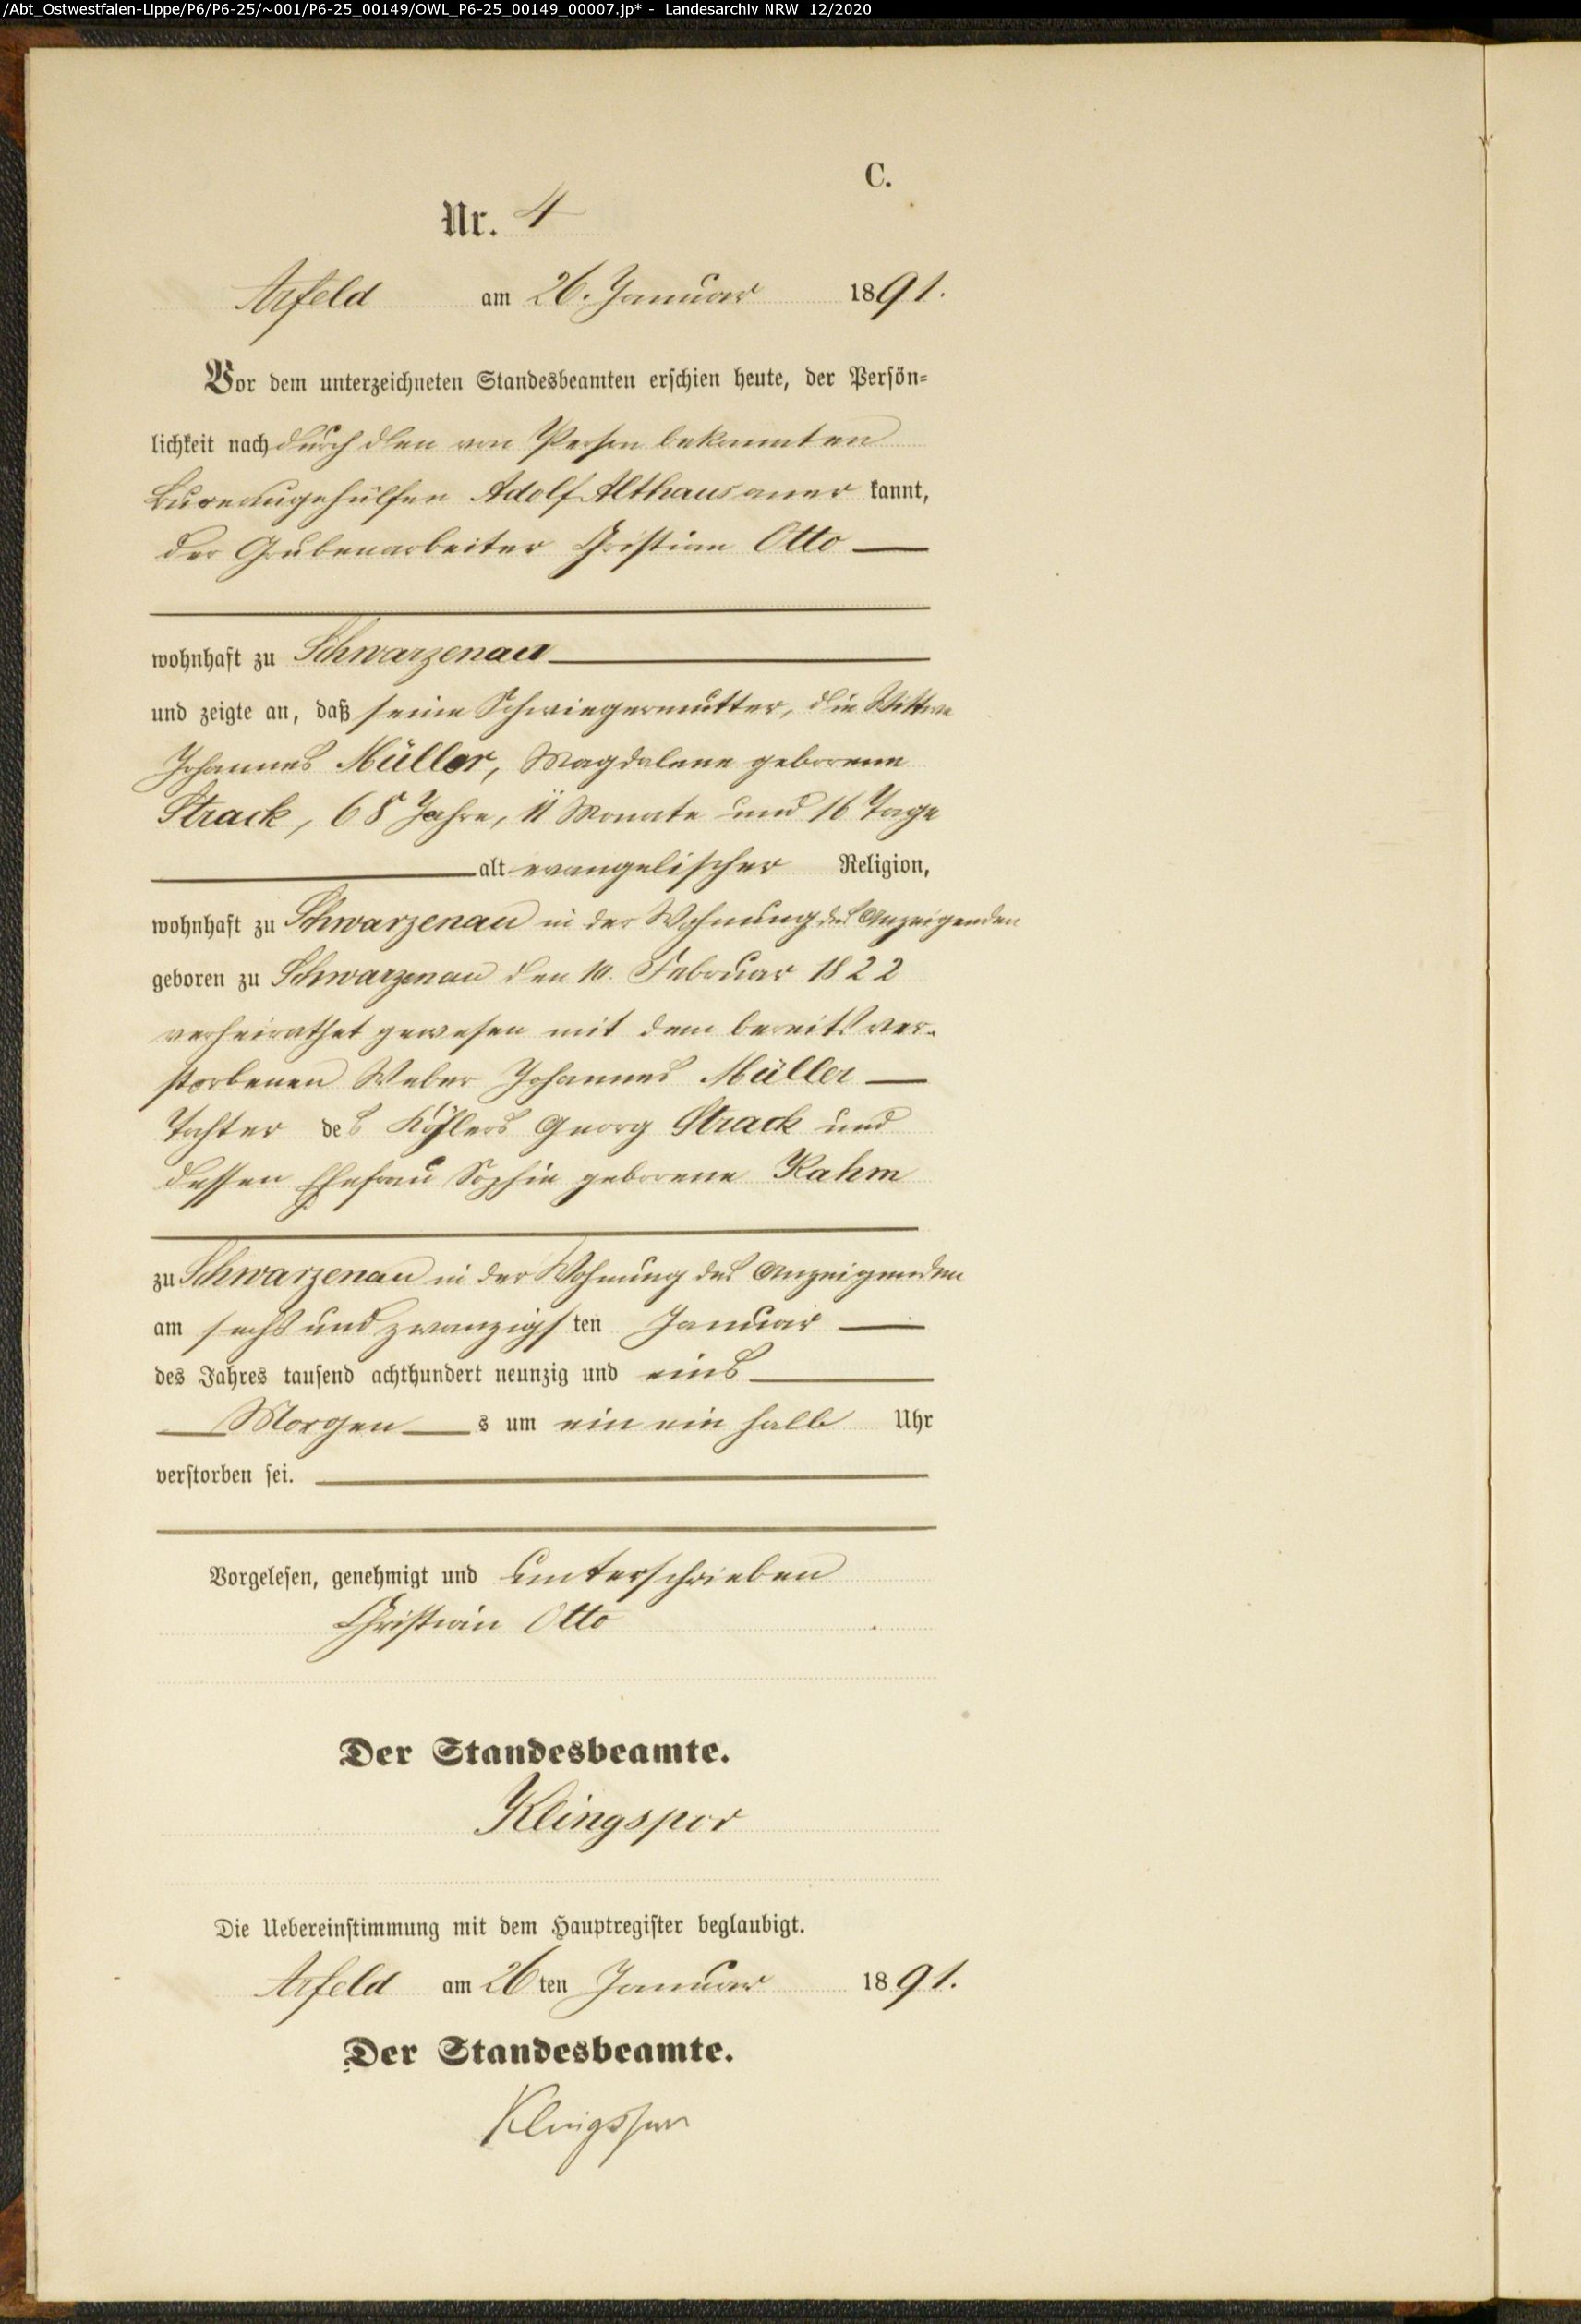 /Abt_Ostwestfalen-Lippe/P6/P6-25/~001/P6-25_00149/OWL_P6-25_00149_00007.jp* - Landesarchiv NRW 12/2020
C.
Nr. 4
Arfeld am 26. Januar 1891.
Vor dem unterzeichneten Standesbeamten erschien heute, der Persön=
lichkeit nach durch den von Person bekannten
Bureaugehülfen Adolf Althaus aner kannt,
der Grubenarbeiter Christian Otto
wohnhaft zu Schwarzenau
und zeigte an, daß seine Schwiegermutter, die Wittwe
Johannes Müller, Magdalene geborene
Strack, 68 Jahre, 11 Monate und 16 Tage
alt evangelischer Religion,
wohnhaft zu Schwarzenau in der Wohnung des Anzeigenden
geboren zu Schwarzenau den 10. Februar 1822
verheirathet gewesen mit dem bereits ver-
storbenen Weber Johannes Müller
Tochter des Köhlers Georg Strack und
dessen Ehefrau Sophie geborene Rahm
zu Schwarzenau in der Wohnung des Anzeigenden
am sechs und zwanzigsten Januar
des Jahres tausend achthundert neunzig und eins
Morgens um ein ein halb Uhr
verstorben sei.
Vorgelesen, genehmigt und unterschrieben
Christian Otto
Der Standesbeamte.
Klingspor
Die Uebereinstimmung mit dem Hauptregister beglaubigt.
Arfeld am 26ten Januar 1891.
Der Standesbeamte.
Klingspor